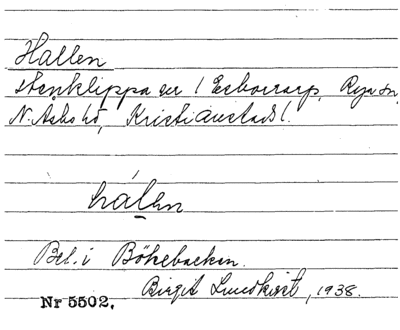 Hallen
Stenklippa ur / Esborrarp, Rya sn,
N. Åsbo hd, Kristianstads l.
hálen
Bel. i Bökebacken.
Birgit Lundkvist, 1938.
Nr 5502.